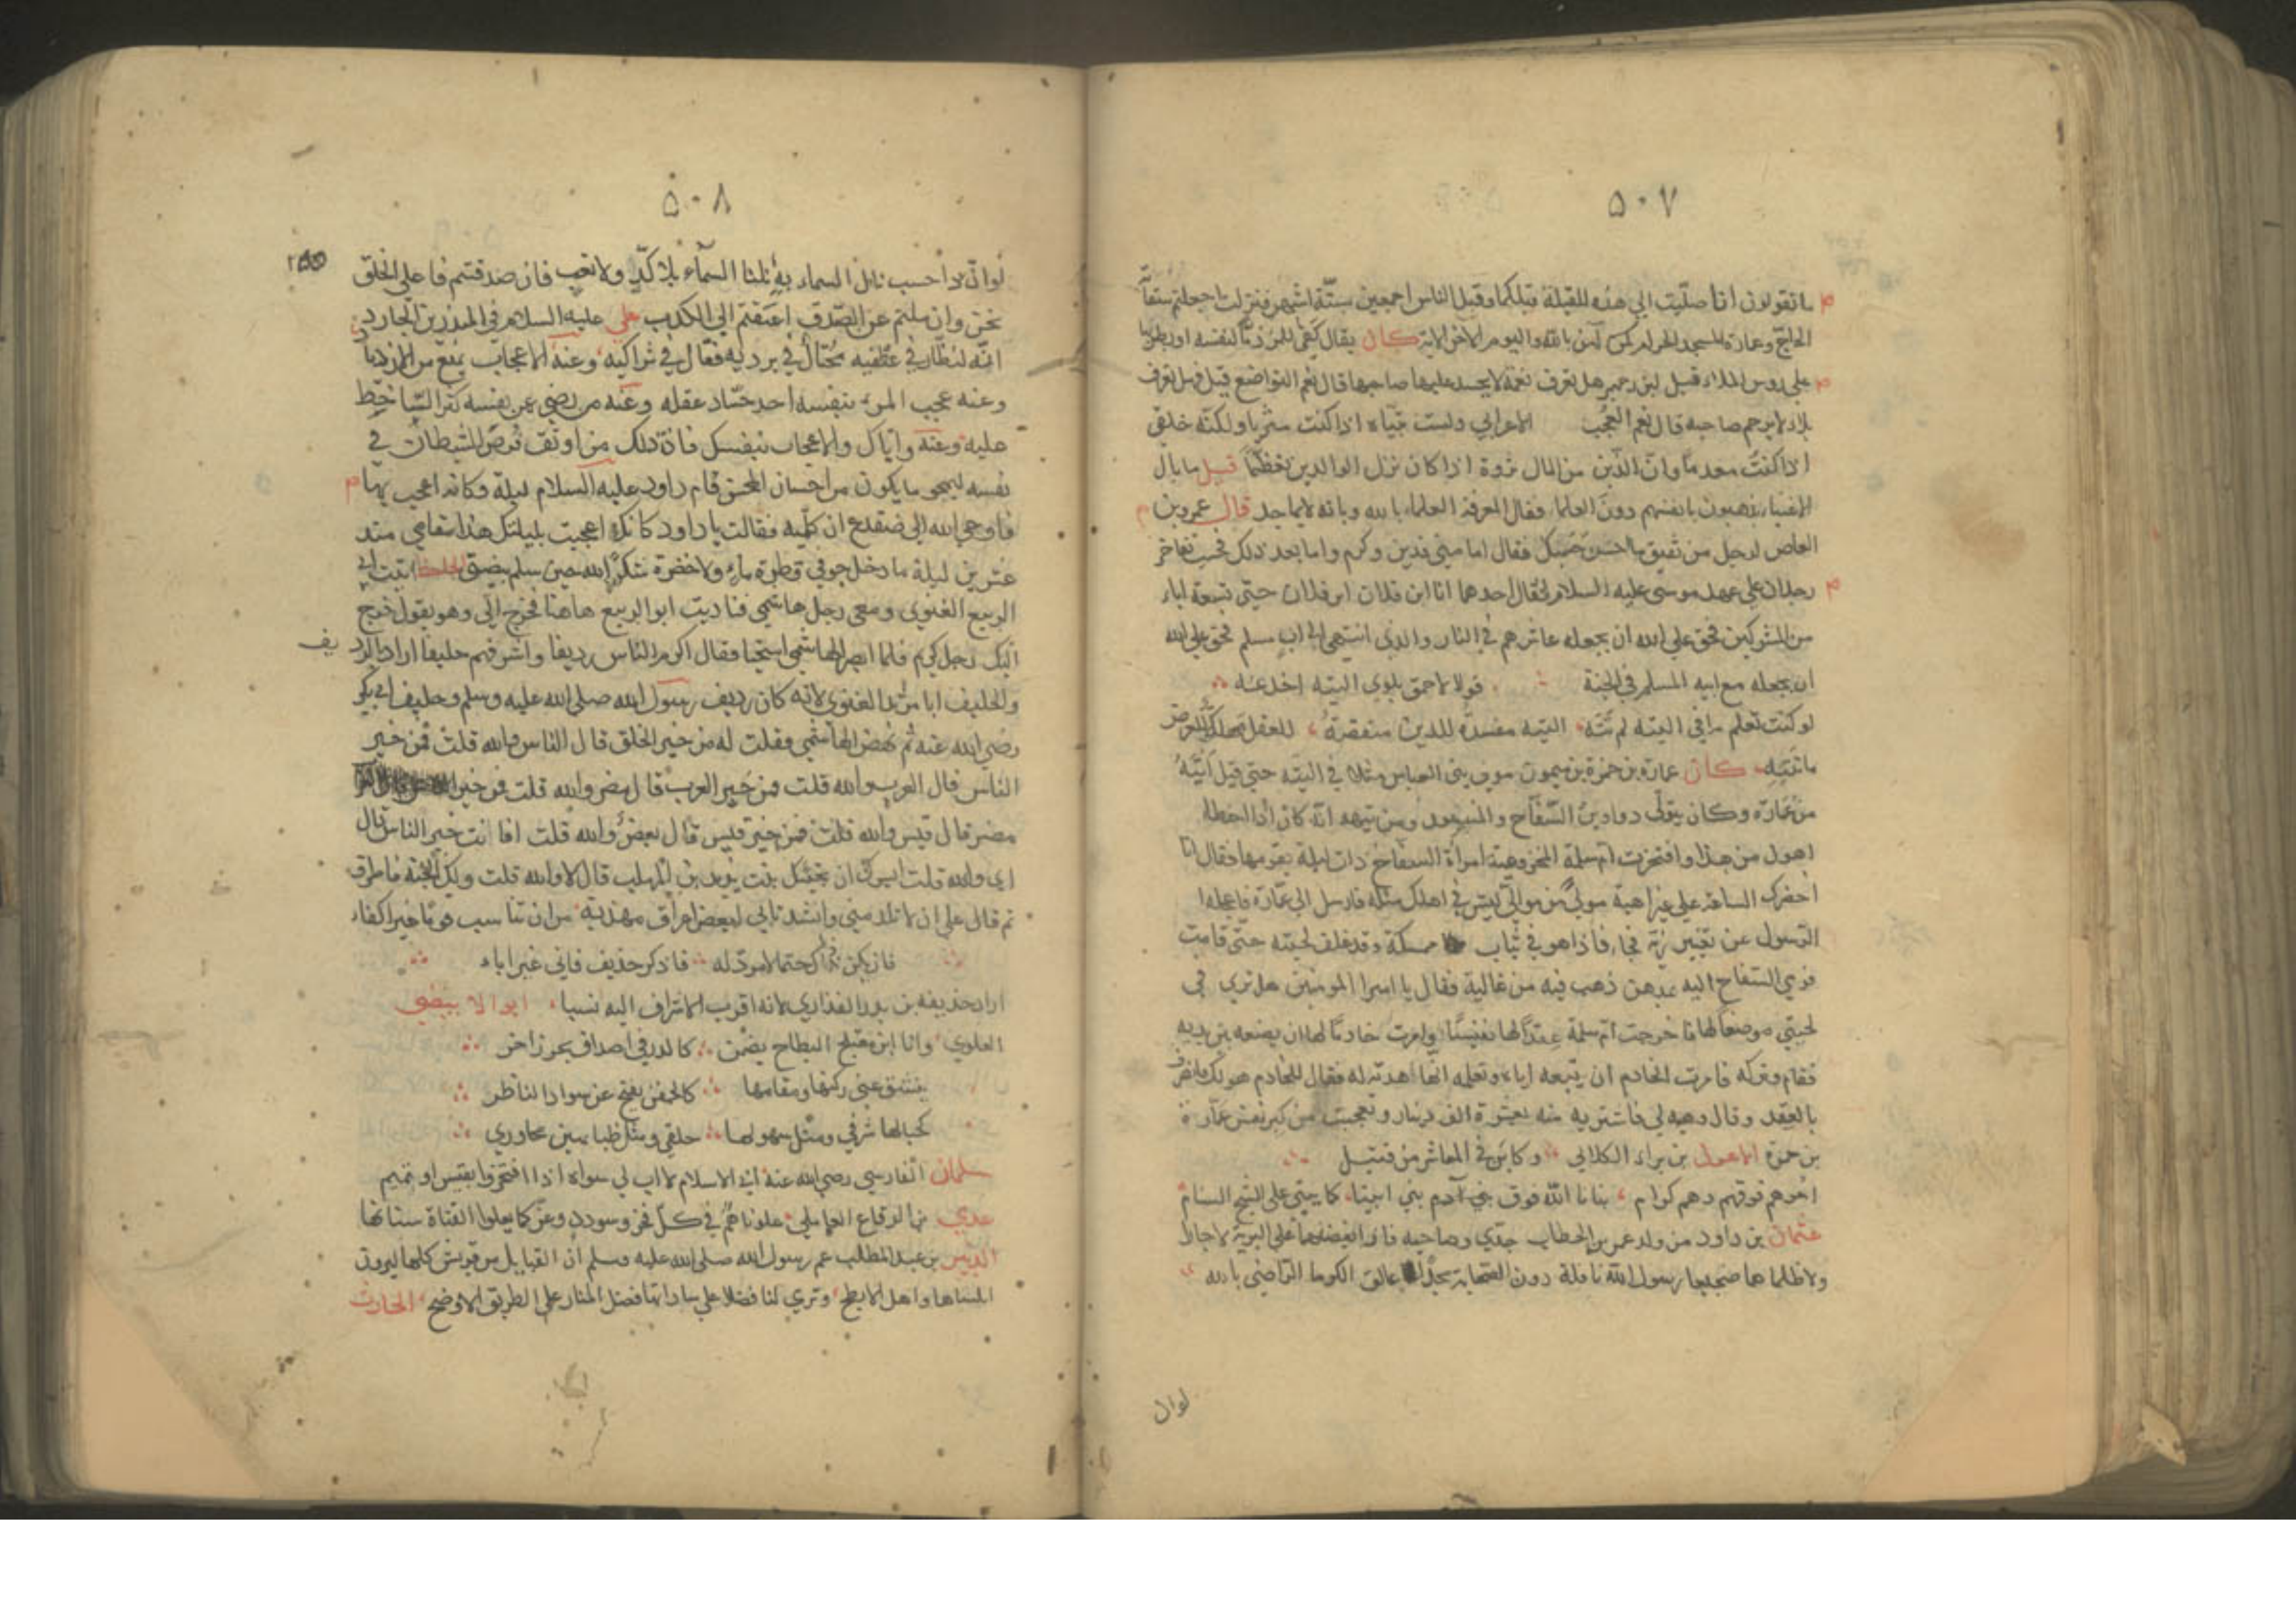 ٥٠٧
ما تقولون انا صليت الي هذه للقبلة قبلكما وقبل الناس اجمعين ستة اشهر فنزلت اجعلتم سقاية
الحاج وعمارة المسجد الحرام كمن آمن بالله واليوم الآخر الاية كان يقال كفى للمرء ذما لنفسه اوريطها
علي روس الملاء قيل لبزرجمهر هل تعرف نعمة لا يحسد عليها صاحبها قال نعم التواضع قيل فهل تعرف
بلاء لا يرحم صاحبه قال نعم العجب الاعرابي ولست بتياه اذا كنت مثريا ولكنه خلقي
اذا كنت معدما وان الذي من المال ثروة اذا كان نزل الوالدين تعظما قيل ما بال
الاغنياء يذهبون بانفسهم دون العلماء فقال لمعرفة العلماء بالله وبانه لا يماجد قال عمرو بن
العاص لرجل من ثقيق ما حسن حسبك فقال اما ميني فدين وكرم واما بعد ذلك فحسب تفاخر
رجلان علي عهد موسى عليه السلام فقال احدهما انا ابن فلان ابن فلان حتى تسعة اباء
من المشركين فحق علي الله ان يجعله عاشرهم في النار والذي انتهى الى اب مسلم فحق علي الله
ان يجعله مع ابيه المسلم في الجنة قولا لاحمق يلوي التيه اخدعه
لو كنت تعلم ما في التيه لم تته التيه مفسدة للدين منقصة للعقل مهلكة للعرض
ما تتيه كان عمارة بن حمزة بن ميمون مولى بني العباس مثلا في التيه حتى قيل اتيه
من عمارة وكان يتولى دواوين السفاح والمنصور ومن تيهه انه كان اذا اخطا
اهول من هذا وافتخرت ام سلمة المخزومية امراة السفاح ذات ليلة بقومها وقال انا
احضرك الساعة علي غير اهبة مولي من موالي ليس في اهلك مثله فارسل الي عمارة فاعجله
الرسول عن تغيير زيه فجاء فاذا هو في ثياب ممسكة وقد غلف لحيته حتى قامت
فرمي السفاح اليه بدهن ذهب فيه من غالية فقال يا امير المومنين هل ترى في
لحيتي موضعا لها فاخرجت ام سلمة عقدا لها نفيسا وامرت خادما لها ان يضعه بين يديه
فقام وتركه فامرت الخادم ان يتبعه اياه وتعلمه انها اهدته له فقال للخادم هو لك فانصرف
بالعقد وقال وهبه لي فاشتريه منه بعشرة الف دينار وتعجبت من كبر نفس عمارة
بن حمزة الاهول بن براء الكلابي وكاين في المعاشر من قبيل
اخوهم فوقهم وهم كرام بنانا الله فوق بني آدم بني ابينا كما يبنى على الثبج السنام
عثمان بن داود من ولد عمر بن الخطاب جدي وصاحبه فازا بفضلهما علي البرية لا جارا
ولا ظلما هما ضجيعا رسول الله نافلة دون الصحابة عالق الكوما الراضي بالله
لوان
٥٠٨
لو ان لاداحسب نال السماء به نلنا السماء بلا كد ولا تعب فان صدقتم فاعلى الخلق
نحن وان ملتم عن الصدق اعتقتم الي الكذب علي عليه السلام في المنذر بن الجارود
انه لنظار في عطفيه مختال في برديه فقال في شراكيه وعنه الاعجاب يمنع من الازدياد
وعنه عجب المرء بنفسه احد حساد عقله وعنه من رضي عن نفسه كثر الساخط
عليه وعنه واياك والاعجاب بنفسك فان ذلك من اوثق فرص الشيطان في
نفسه ليمحو ما يكون من احسان المحسن قام داود عليه السلام ليلة وكانه اعجب بها
فاوحى الله الى ضفدع ان كلميه فقالت يا داود كانك اعجبت بليلتك هذا مقامي منذ
عشرين ليلة ما دخل جوفي قطرة ماء ولا خضرة شكرا لله حين سلم بيضتي الجاحظ اتيت ابا
الربيع الغنوي ومعي رجل هاشمي فناديت ابو الربيع هاهنا فخرج الي وهو يقول خرج
اليك رجل كريم فلما ابصر الهاشمي استحيا فقال اكرم الناس رديفا واشرفهم حليفا اراد بالرديف
والحليف ابا مرثد الغنوي لانه كان رديف رسول الله صلى الله عليه وسلم وحليف ابي بكر
رضي الله عنه ثم نهض الهاشمي فقلت له من خير الخلق قال الناس والله قلت فمن خير
الناس قال العرب والله قلت فمن خير العرب قال مضر والله قلت فمن خير
مضر قال قيس والله قلت فمن خير قيس قال يعصر والله قلت افانت خير الناس قال
اي والله قلت ايسرك ان تحتك بنت يزيد بن المهلب قال لا والله قلت ولك الجنة فاطرق
ثم قال علي ان لا تلد مني وانشد تابي ليعصر اعراق مهذبة من ان تناسب قوما غير اكفاء
فان يكن ذاك حتما لا مرد له فاذكر حذيف فاني غير اباء
اراد حذيفة بن بدر الفزاري لانه اقرب الاشراف اليه نسبا ابو الابيضي
العلوي وانا ابن مقتلج البطاح يضمن كالدر في اصداف بحر زاخر
ينشق عني ركنها ومقامها كالجفن يفتح عن سواد الناظر
كجبالها شرفي ومثل سهولها خلقي ومثل ظبايهن مجاوري
سلمان الفارسي رضي الله عنه ابي الاسلام لا اب لي سواه اذا افتخروا بقيس او تميم
عدي بن الرقاع العاملي علوناهم في كل فخر وسودد وعز كما يعلوا القناة سنانها
الزبير بن عبد المطلب عم رسول الله صلى الله عليه وسلم ان القبايل من قريش كلها ليرون
اهل الابطح وترى لنا فضلا علي ساداتها فضل المنار على الطريق الاوضح الحارث